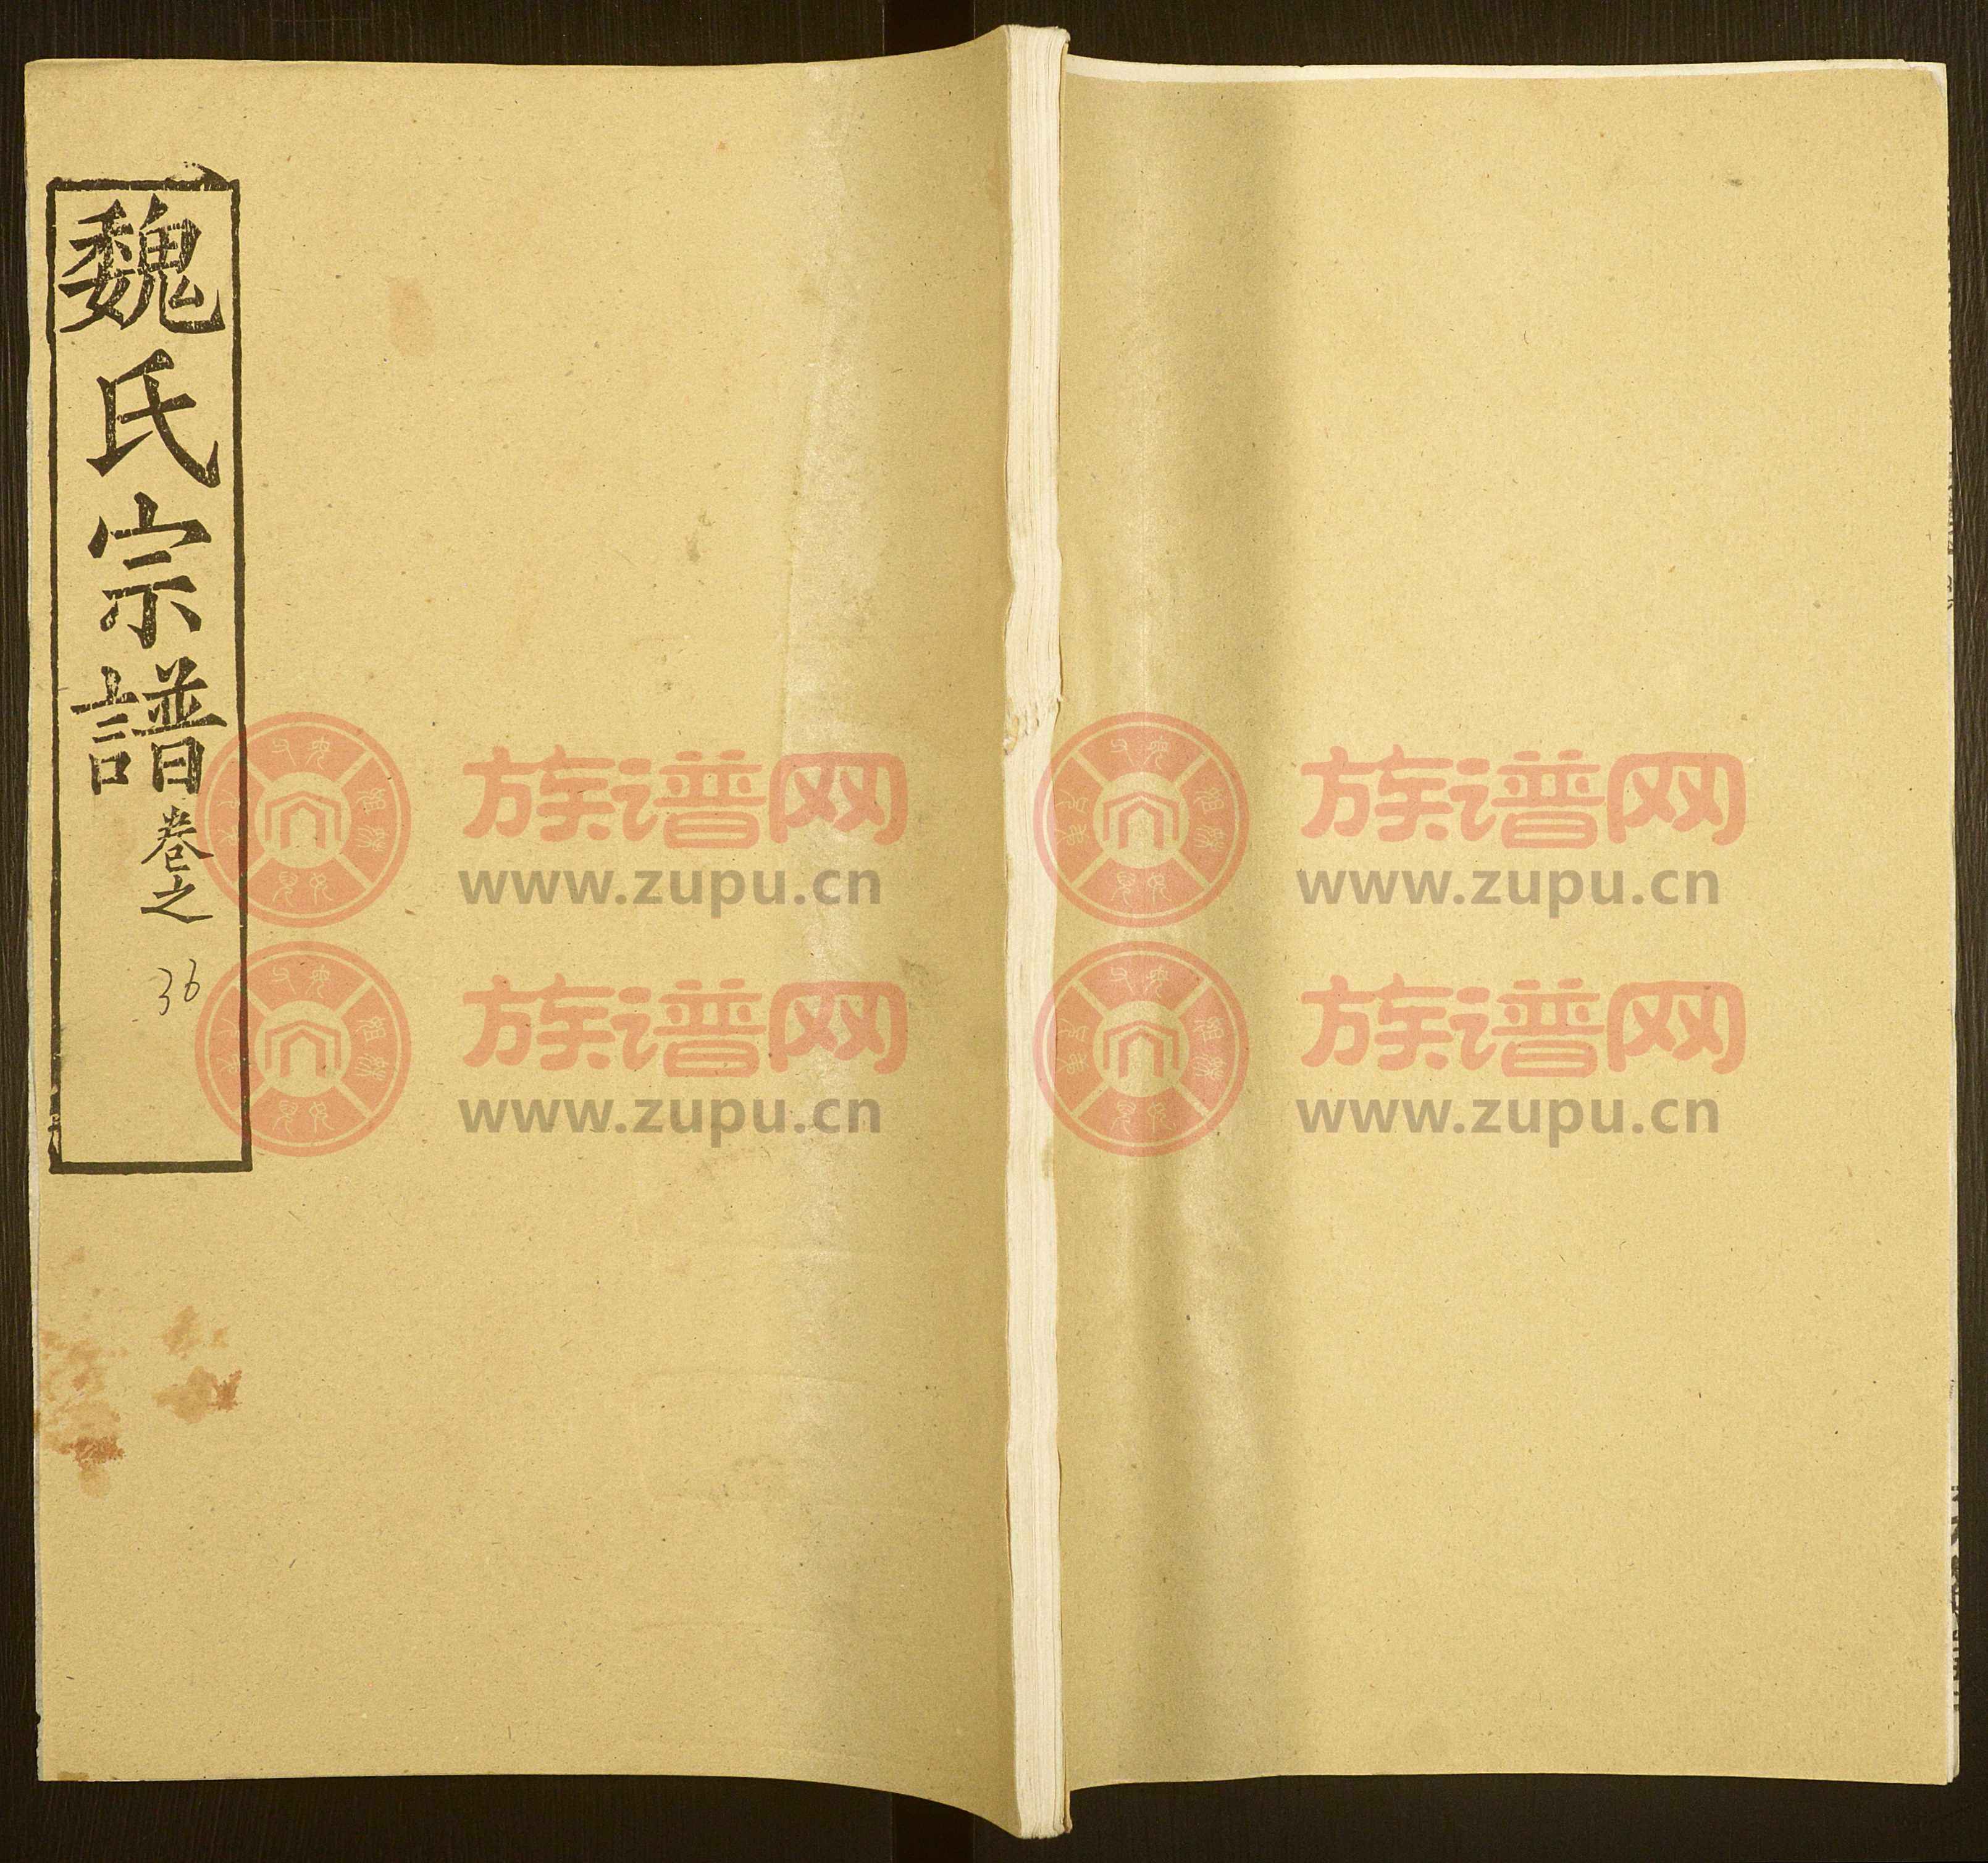 魏氏宗譜
卷之
36
族谱网
www.zupu.cn
族谱网
www.zupu.cn
族谱网
www.zupu.cn
族谱网
www.zupu.cn